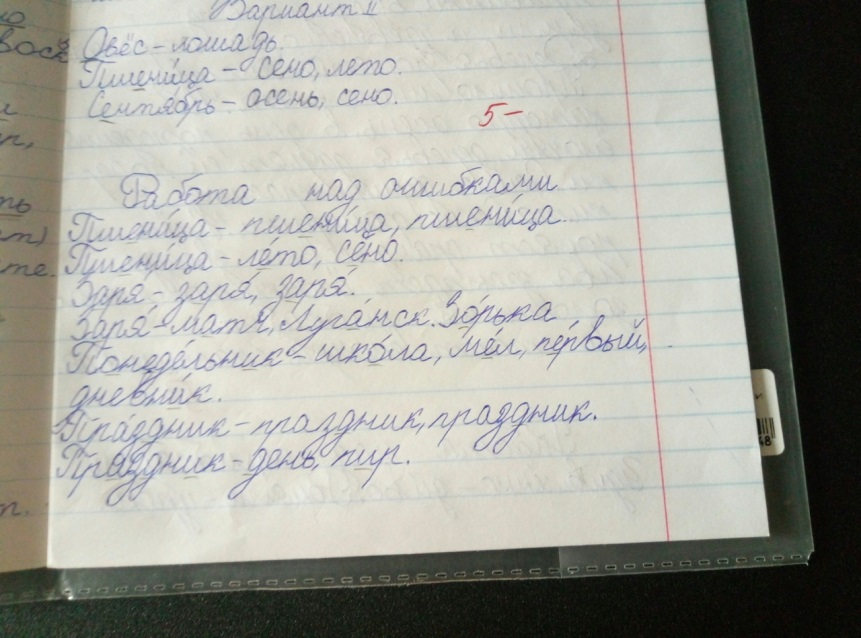 Вариант II
Овёс - лошадь.
Пшеница - сено, лето.
Сентябрь - осень, сено.
5-
Работа над ошибками
Пшени́ца - пшени́ца, пшени́ца.
Пшеница - ле́то, се́но.
Заря - заря́, заря́.
Заря́ - матя, Луга́нск. Зо́рька
Понеде́льник - шко́ла, мел, пе́рвый,
дневни́к.
Пра́здник - праздник, праздник.
Праздник - день, пир.
но
восх
и
р,
ть
ет)
те.
т.
48